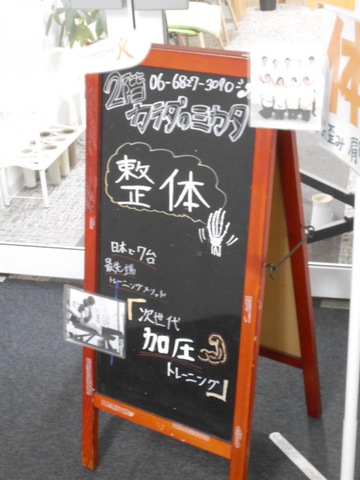 06-6827-3090
2階
カラダのミカタ
整体
日本で7台
最先端
トレーニングメソッド
「次世代
加圧
トレーニング」
体
歪み